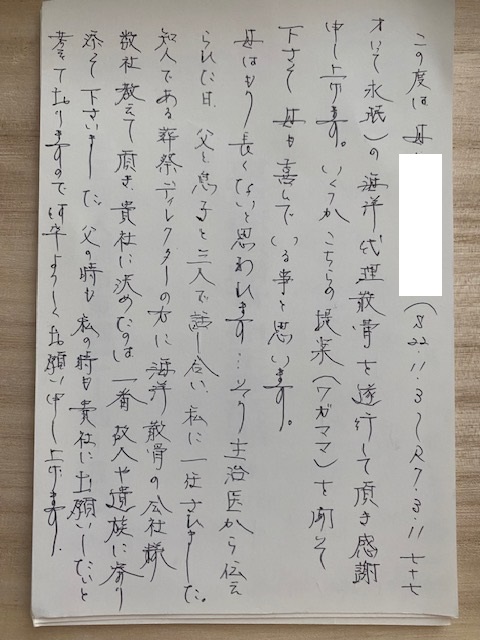 この度は 母 (S22.11.3〜R7.3.11 七十七
才にて永眠)の海洋代理散骨を遂行して頂き感謝
申し上げます。いくつかこちらの提案(ワガママ)を聞いて
下さって 母も喜んでいる事と思います。
母はもう長くないと思われます…そう主治医から伝え
られた日、父と息子と三人で話し合い、私に一任されました。
知人である葬祭ディレクターの方に海洋散骨の会社様
数社教えて頂き、貴社に決めたのは一番故人や遺族に寄り
添って下さいました。父の時も私の時も貴社にお願いしたいと
考えて おりますので何卒よろしくお願い申し上げます。